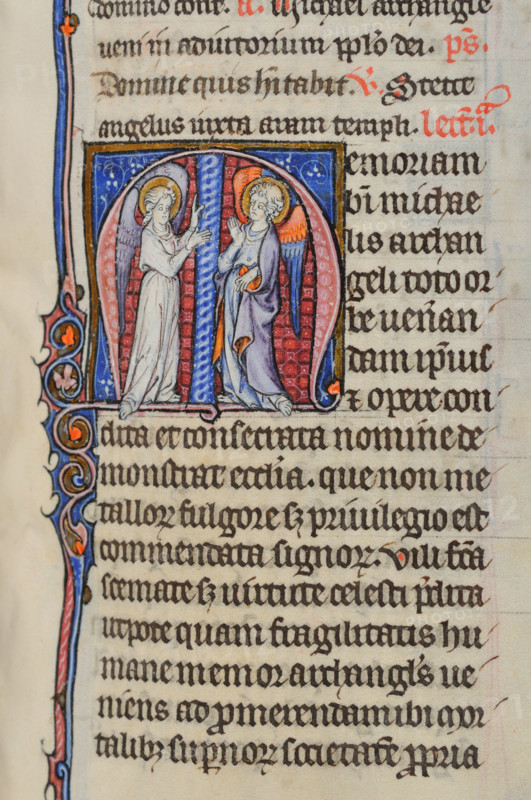 domino conē. R. Michael archangle
veni in adiutorium pplo dei. ps.
Domine quis hītabit. V. Stetit
angelus iuxta aram templi. lect. i.ª
Memoriam
bī michae
lis archan
geli toto or
be ueñan
dam ipsius
⁊ opere con
dita et consecrata nomine de
monstrat ecclīa. que non me
tallorꝝ fulgore sꝫ priuilegio est
commendata signorꝝ. vili fcā
scemate sꝫ uirtute celesti p̄dita
utpote quam fragilitatis hu
mane memor archangłs ue
niens ad ꝓmerendam ibi mor
talibꝫ supnorꝝ societatē ꝓpria